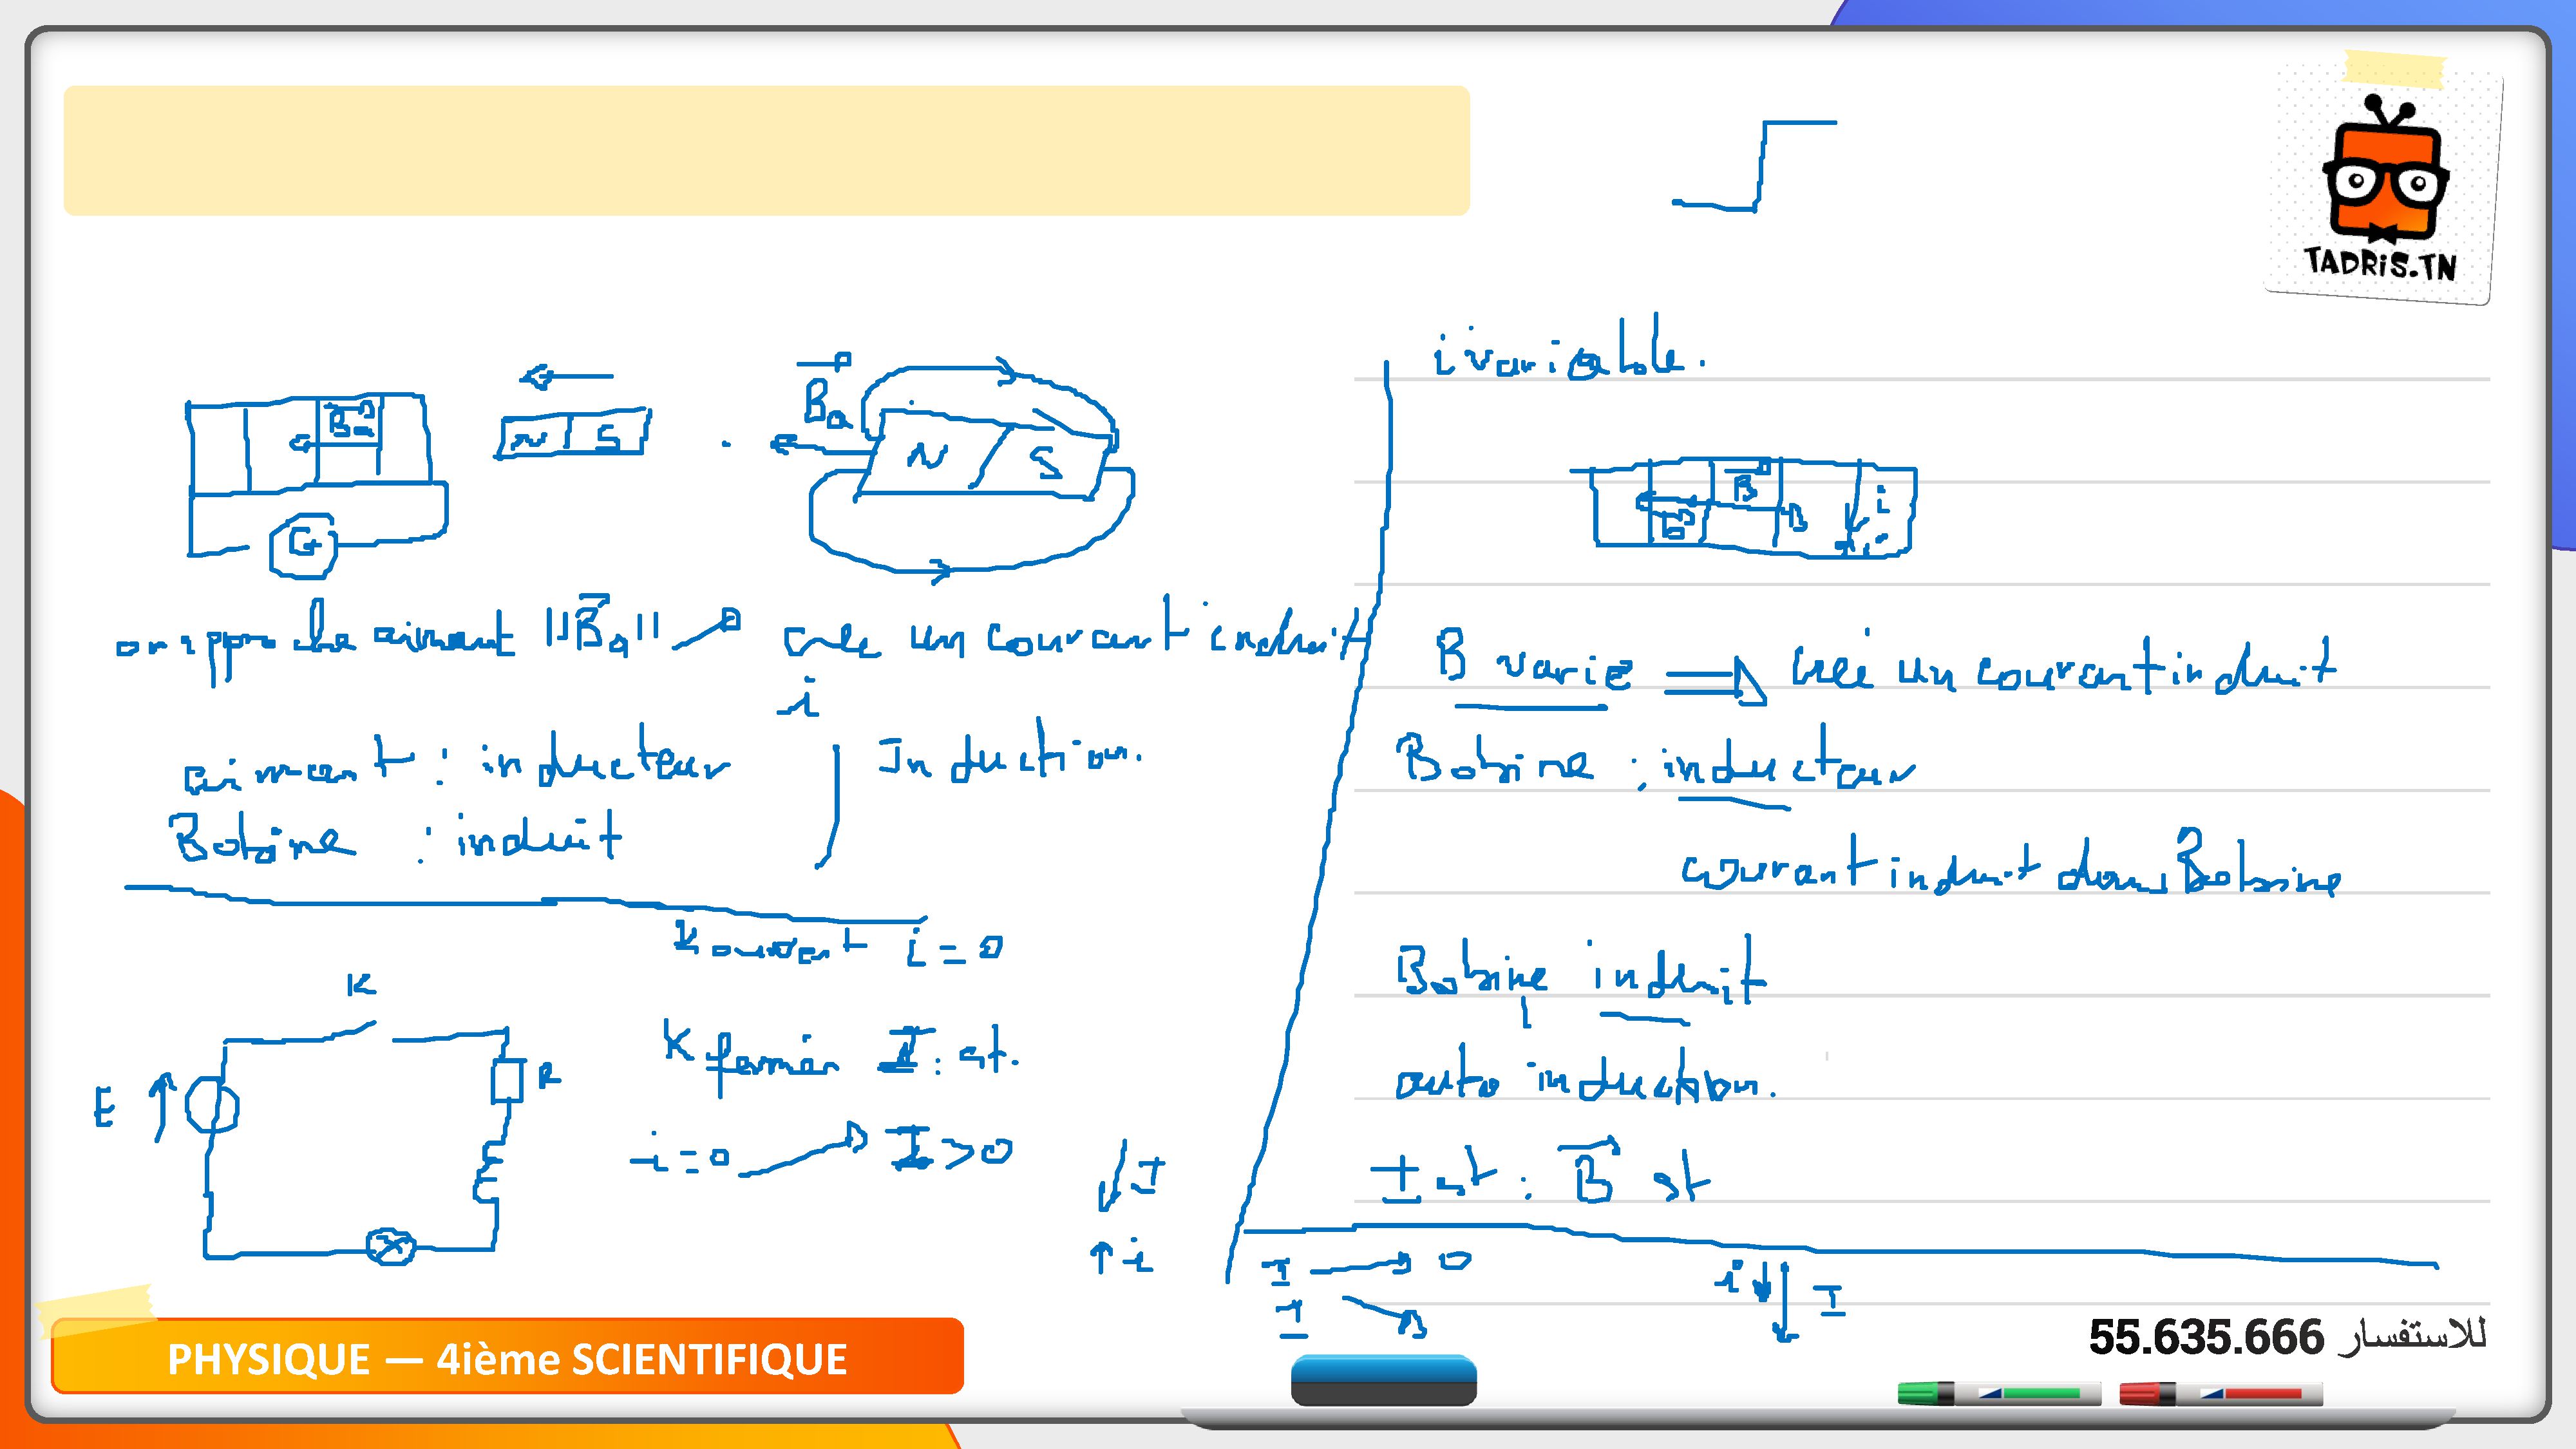 TADRiS.TN
Ba
N S
Ba
N S
G
on approche aimant ||Ba|| ↗ crée un courant induit
i
aimant : inducteur
Bobine : induit
Induction.
K ouvert i = 0
K
E
R
K fermé I : ct.
i = 0 → I > 0
I
i
i variable.
B
i
B varie ⟹ créé un courant induit
Bobine : inducteur
courant induit dans Bobine
Bobine induit
auto induction.
I ct : B ct
I → 0
I ↘
i ↓ ↓ I
PHYSIQUE — 4ième SCIENTIFIQUE
للاستفسار 55.635.666